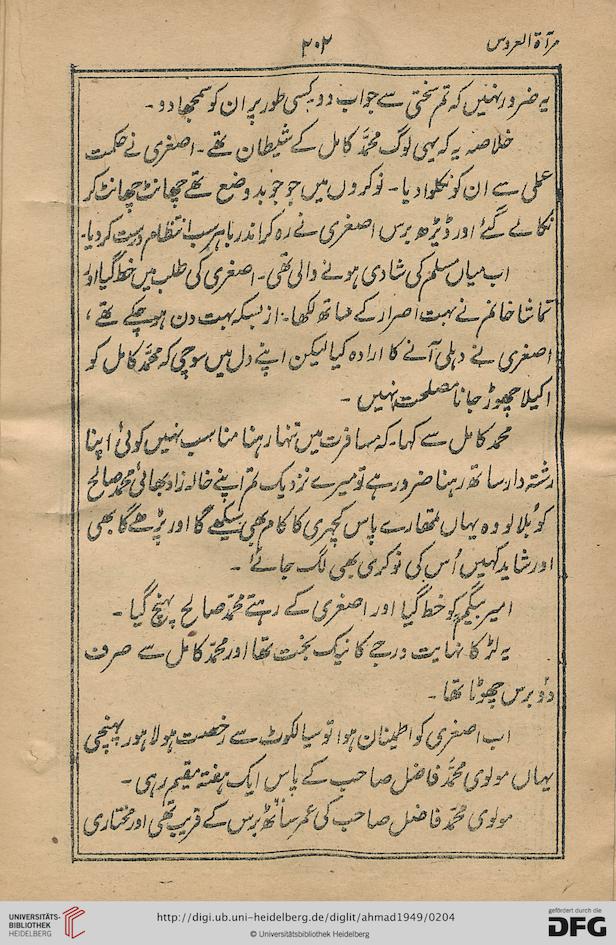 مرآۃ العروس
۲۰۲
یہ ضرور نہیں کہ تم سختی سے جواب دو۔ کسی طور پر ان کو سمجھا دو۔
خلاصہ یہ کہ یہی لوگ محمّد کامل کے شیطان تھے۔ اصغری نے حکمت
عملی سے ان کو نکلوا دیا۔ نوکروں میں جو جو بدوضع تھے چھانٹ چھانٹ کر
نکالے گئے اور ڈیڑھ برس اصغری نے رہ کر اندر باہر سب انتظام درست کر دیا۔
اب میاں مسلم کی شادی ہونے والی تھی۔ اصغری کی طلب میں خط گیا اور
تماشا خانم نے بہت اصرار کے ساتھ لکھا۔ از بسکہ بہت دن ہو چکے تھے،
اصغری نے دہلی آنے کا ارادہ کیا لیکن اپنے دل میں سوچی کہ محمّد کامل کو
اکیلا چھوڑ جانا مصلحت نہیں۔
محمد کامل سے کہا۔ کہ مسافرت میں تنہا رہنا مناسب نہیں کوئی اپنا
رشتہ دار ساتھ رہنا ضرور ہے تو میرے نزدیک تم اپنے خالہ زاد بھائی محمّد صالح
کو بُلا لو وہ یہاں تمھارے پاس کچہری کا کام بھی سیکھے گا اور پڑھے گا بھی
اور شاید کہیں اُس کی نوکری بھی لگ جائے۔
امیر بیگم کو خط گیا اور اصغری کے رہتے محمّد صالح پہنچ گیا۔
یہ لڑکا نہایت درجے کا نیک بخت تھا اور محمّد کامل سے صرف
دو برس چھوٹا تھا۔
اب اصغری کو اطینان ہوا تو سیالکوٹ سے رخصت ہو لاہور پہنچی
یہاں مولوی محمّد فاضل صاحب کے پاس ایک ہفتہ مقیم رہی۔
مولوی محمّد فاضل صاحب کی عمر ساٹھ برس کے قریب تھی اور مختاری
UNIVERSITÄTS-
BIBLIOTHEK
HEIDELBERG
http://digi.ub.uni-heidelberg.de/diglit/ahmad1949/0204
© Universitätsbibliothek Heidelberg
gefördert durch die
DFG